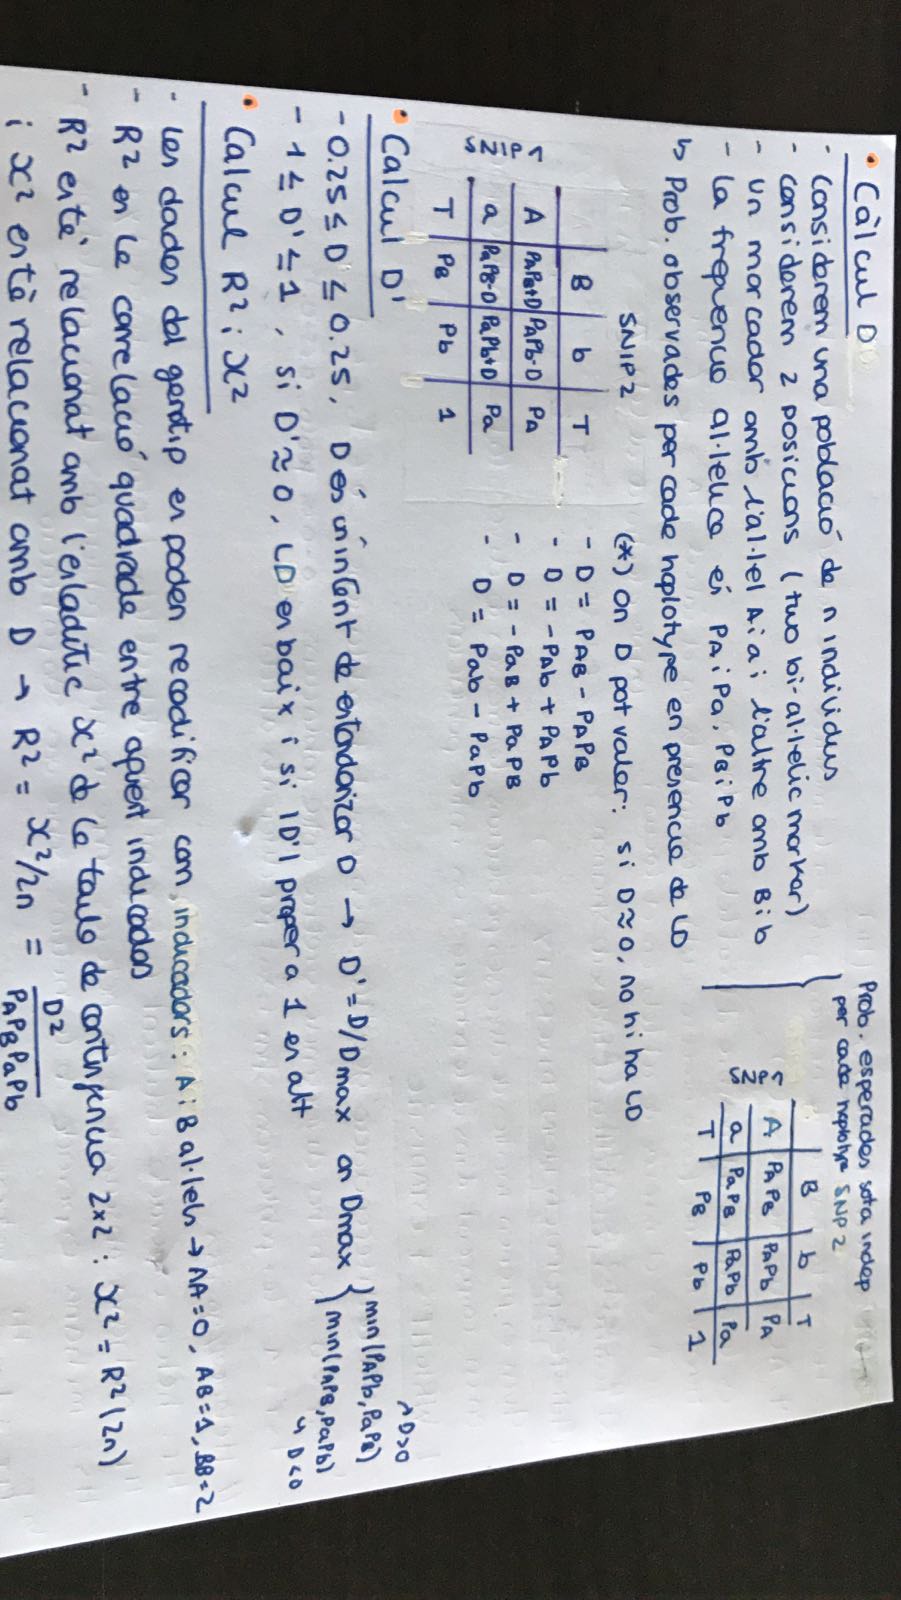 • Càlcul D
- Considerem una població de n individus
- considerem 2 posicions (two bi-al·lelic marker)
- un marcador amb l'al·lel A i a i l'altre amb B i b
- la frequencia al·lelica és PA i Pa, PB i Pb
↳ Prob. observades per cada haplotype en presencia de LD
Prob. esperades sota indep
per cada haplotype SNP2
SNP1
B b T
A PAPB PAPb PA
a PaPB PaPb Pa
T PB Pb 1
SNIP2
SNIP1
B b T
A PAPB+D PAPb-D PA
a PaPB-D PaPb+D Pa
T PB Pb 1
(*) On D pot valer: si D≈0, no hi ha LD
- D = PAB - PAPB
- D = -PAb + PAPb
- D = -PaB + PaPB
- D = Pab - PaPb
• Calcul D'
-0.25 ≤ D ≤ 0.25, D és un intent de estandarizar D → D' = D/Dmax on Dmax { min(PAPb, PaPB) ↗ D>0
min(PAPB, PaPb) ↳ D<0
-1 ≤ D' ≤ 1, si D'≈0, LD es baix i si |D'| proper a 1 es alt
• Calcul R² i x²
- Les dades del genotip es poden recodificar com indicadors: A i B al·lels → AA=0, AB=1, BB=2
- R² es la correlació quadrada entre aquest indicados
- R² està relacionat amb l'estadistic x² de la taula de contingencia 2x2: x² = R²(2n)
i x² està relacionat amb D → R² = x²/2n = D²/PAPBPaPb